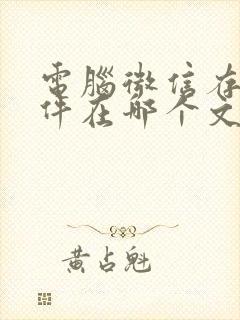 電腦微信存
件在哪个文
黄占魁